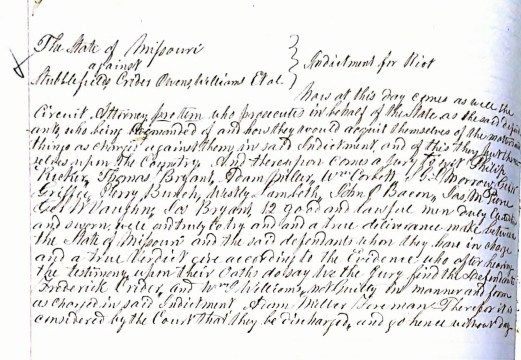 The State of Missouri
against
Stubblefield, Crider Owens, Williams Et al
Indictment for Riot
Now at this day comes as well the
Circuit Attorney protem who prosecutes in behalf of the State as the said defend
ants, who being demanded of and how they would acquit themselves of the matters and
things as charged against them in said Indictment, and of this they put them
selves upon the Country. And thereupon comes a Jury to wit Philip
Rucker, Thomas Bryant, Adam Miller, Wm Morrow,
Griffee, Perry Bunch, Westly Lambeth, John C Bacon, Jas M
Geo W Vaughn, Jas Bryant, 12 good and lawful men duly
and sworn well and truly to try and a true deliverance make between
the State of Missouri and the said defendants whom they have in charge
and a true Verdict give according to the Evidence who after hearing
the testimony upon their Oaths do say We the Jury find the Defendants
Frederick Crider, and Wm C Williams, not Guilty in manner and form
as charged in said Indictment. Adam Miller Foreman Therefor it is
considered by the Court that they be discharged, and go hence without day